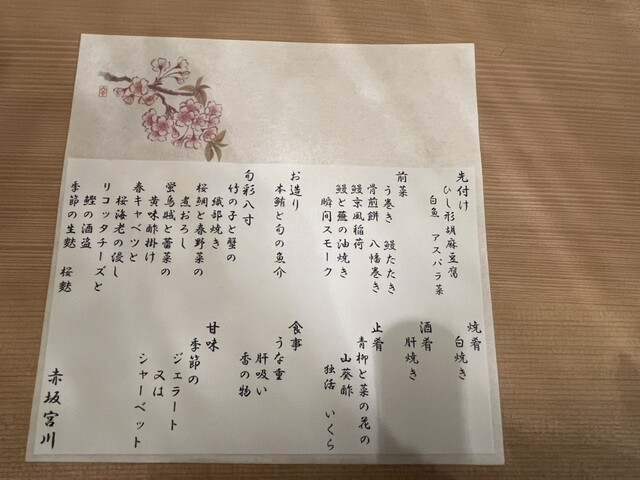 先付け
ひし形胡麻豆腐
白魚 アスパラ菜
前菜
う巻き 鰻たたき
骨煎餅 八幡巻き
鰻京風稲荷
鰻と蕪の油焼き
瞬間スモーク
お造り
本鮪と旬の魚介
旬彩八寸
竹の子と蟹の
織部焼き
桜鯛と春野菜の
煮おろし
蛍烏賊と蕾菜の
黄味酢掛け
春キャベツと
桜海老の浸し
リコッタチーズと
鰹の酒盗
季節の生麩 桜麩
焼肴
白焼き
酒肴
肝焼き
止肴
青柳と菜の花の
山葵酢
独活 いくら
食事
うな重
肝吸い
香の物
甘味
季節の
ジェラート
又は
シャーベット
赤坂宮川